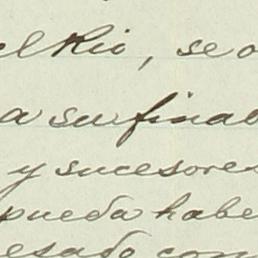 el Rio, se o
a su final
y sucesores
pueda habe
esado com